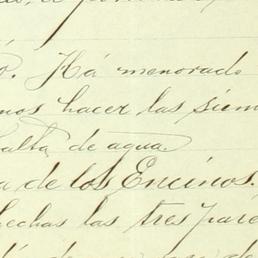 Há menorado
mos hacer las siem
falta de agua.
a de los Encinos.
echas las tres pare